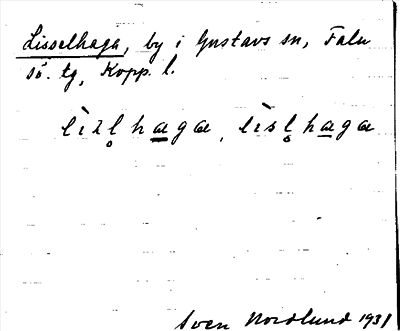 Lisselhaga, by i Gustavs sn, Falu
sö. tg, Kopp. l.
lìzl̥ haga, lìsl̥ haga
Sven Nordlund 1931